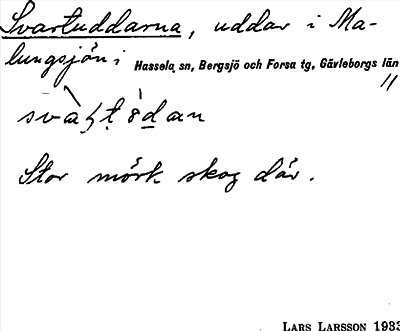 Svartuddarna, uddar i Ma-
lungsjön i Hassela sn, Bergsjö och Forsa tg, Gävleborgs län
Stor mörk skog där.
LARS LARSSON 1933